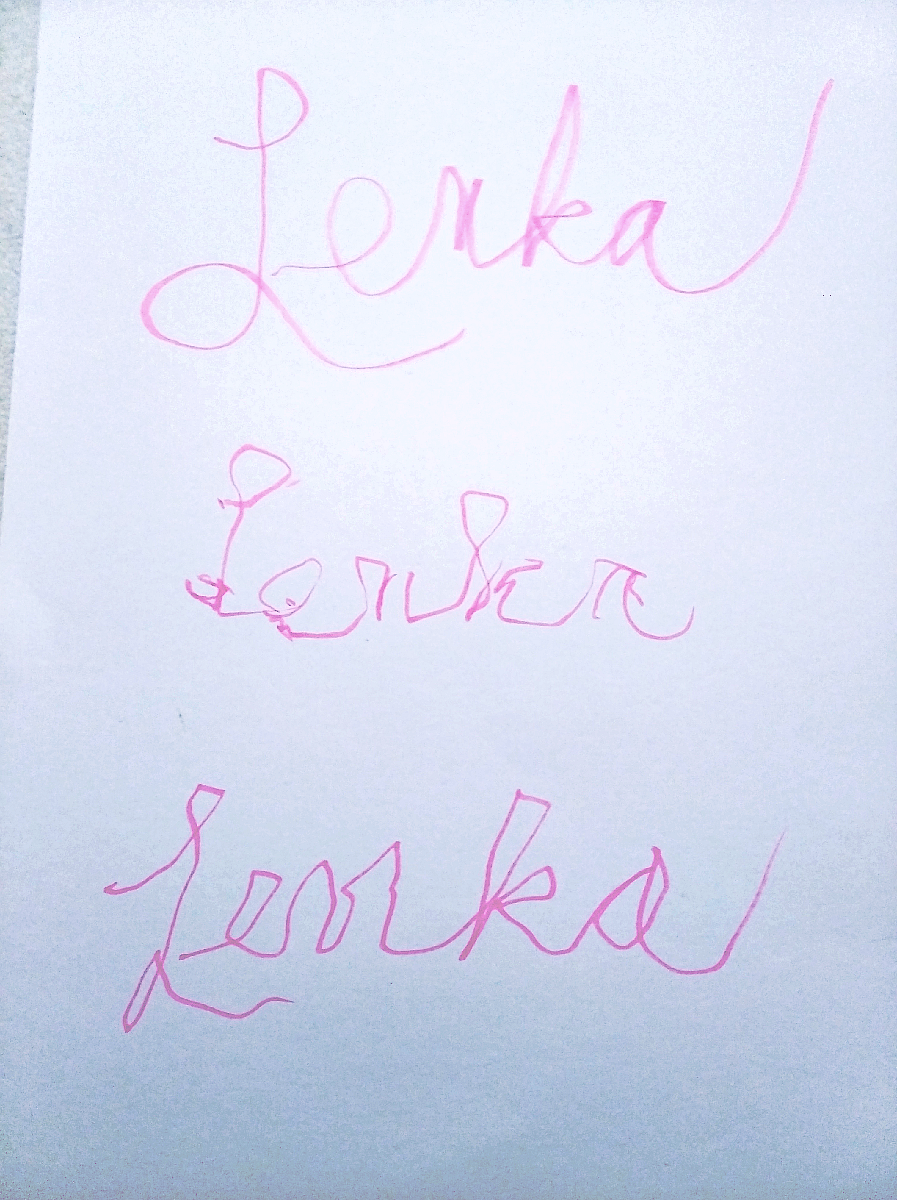 Lenka
Lenka
Lenka